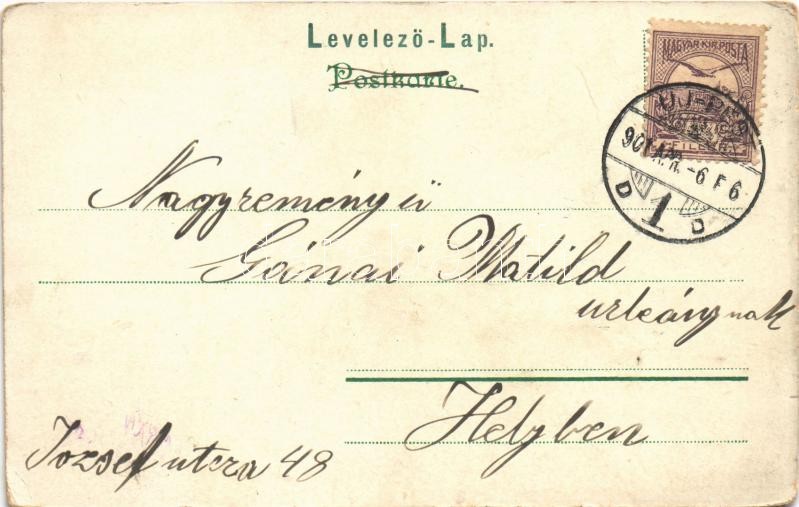 Levelező-Lap.
Postkarte.
MAGYAR KIR. POSTA
FILLÉR
UJ-PEST
901 APR. -6 F 6
D 1 D
Nagyreményű
Gánai Matild
urleánynak
Helyben
Jozsef utcza 48